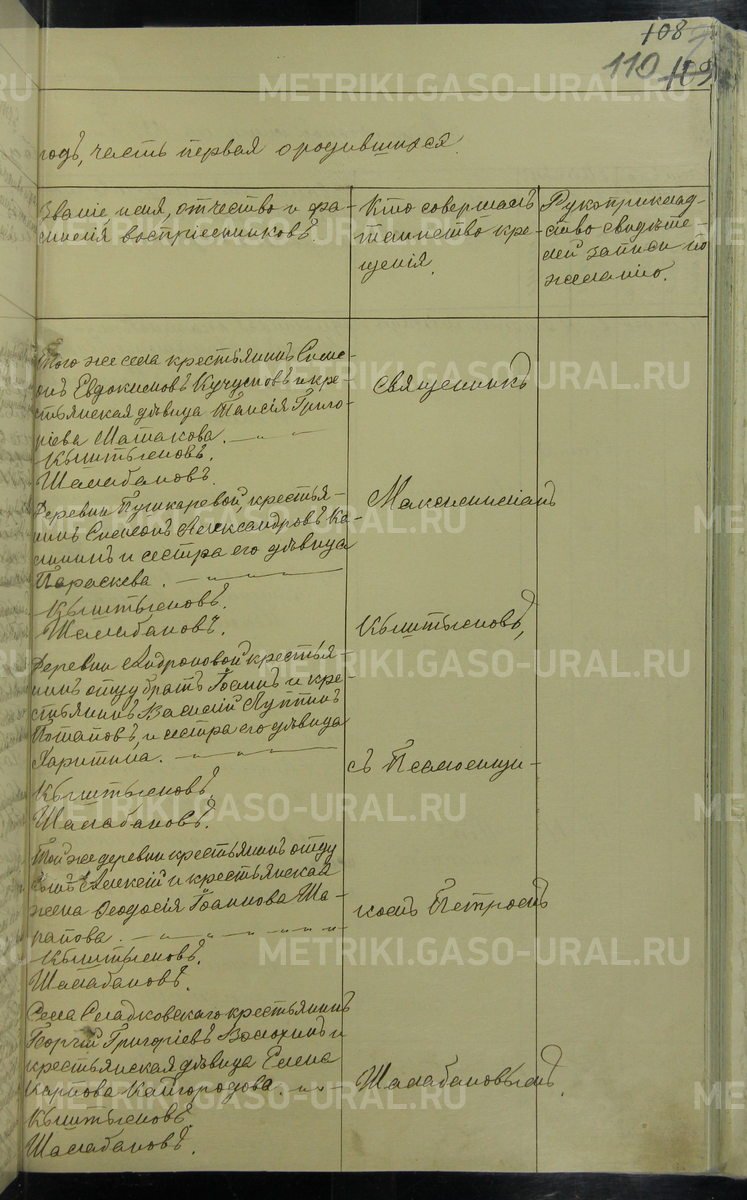 108
110 109
годъ, часть первая о родившихся.
Званіе, имя, отчество и фа-
милія воспріемниковъ.
Кто совершалъ
таинство кре-
щенія.
Рукоприклад-
ство свидѣте-
лей записи по
желанію.
Того же села крестьянинъ Симе-
онъ Евдокимовъ Кучусовъ и кре-
стьянская дѣвица Таисія Григо-
ріева Шатакова.
Кыштымовъ.
Шалабановъ.
Деревни Пушкаревой, крестья-
нинъ Симеонъ Александровъ Ка-
лининъ и сестра его дѣвица
Параскева.
Кыштымовъ.
Шалабановъ.
Деревни Андроновой крестья-
нинъ отцу братъ Іоаннъ и кре-
стьянинъ Василій
Потаповъ, и сестра его дѣвица
Харитина.
Кыштымовъ.
Шалабановъ.
Той же деревни крестьянинъ отцу
сынъ Алексій и крестьянская
жена Ѳеодосія Іоаннова Ша-
рапова.
Кыштымовъ.
Шалабановъ.
Села Сладковскаго крестьянинъ
Георгій Григоріевъ Волохинъ и
крестьянская дѣвица Елена
Карпова Кайгородова.
Кыштымовъ.
Шалабановъ.
Священникъ
Максимиліанъ
Кыштымовъ,
съ Псаломщи-
комъ Петромъ
Шалабановымъ.
METRIKI.GASO-URAL.RU